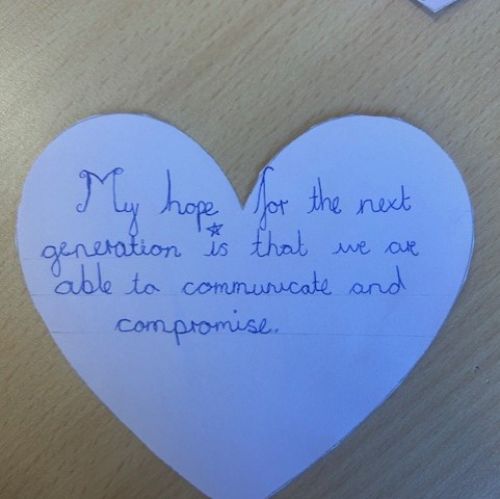 My hope for the next
generation is that we are
able to communicate and
compromise.